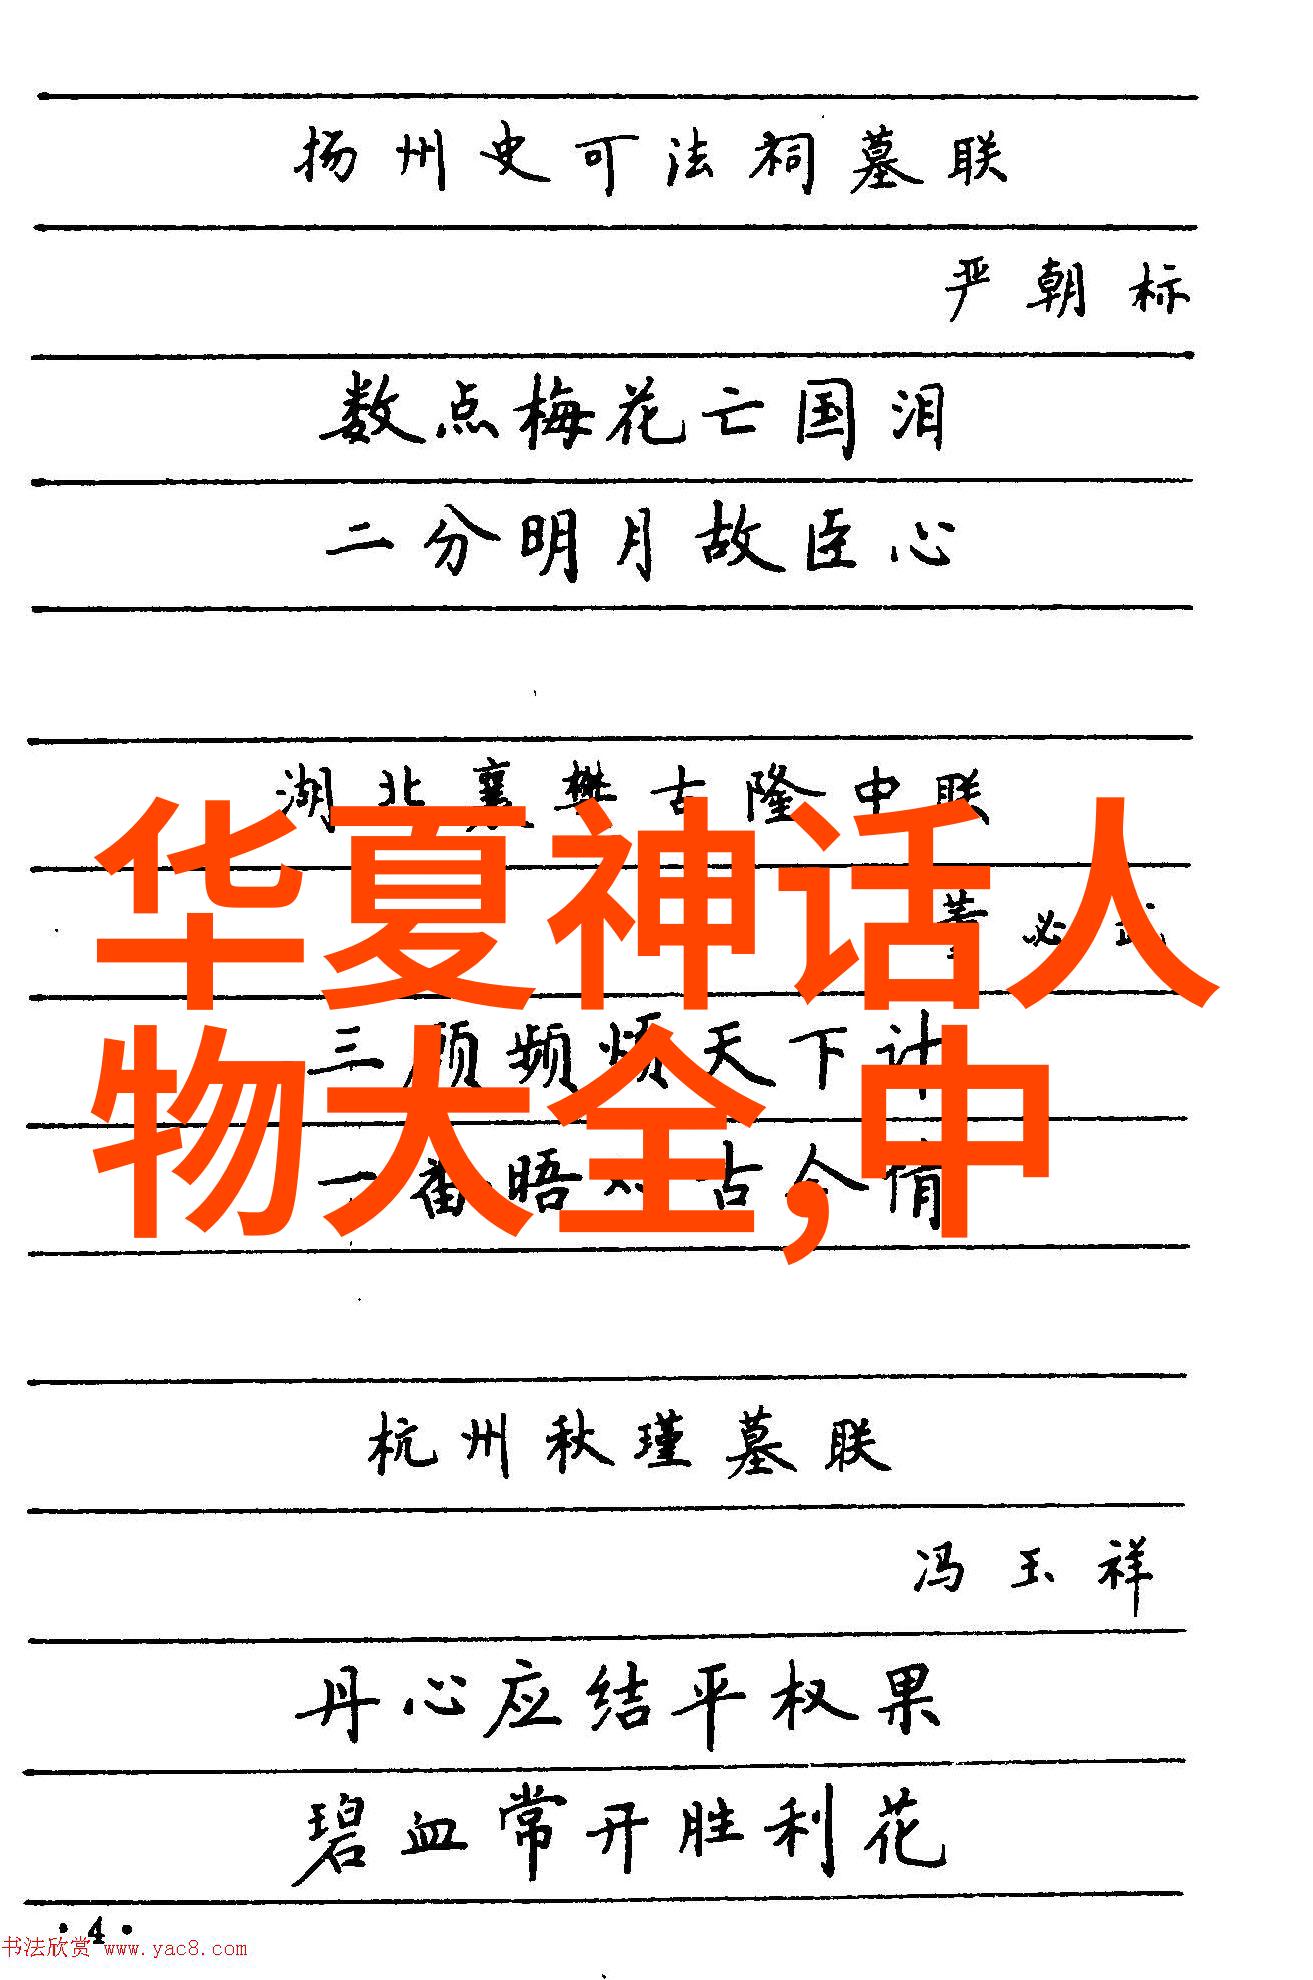 扬州史可法祠墓联
严朝标
数点梅花亡国泪
二分明月故臣心
湖北襄樊古隆中联
董必武
华夏神话人
三顾频烦天下计
物大全,中
一番晤对古今情
杭州秋瑾墓联
冯玉祥
丹心应结平权果
碧血常开胜利花
·4·
书法欣赏 www.yac8.com